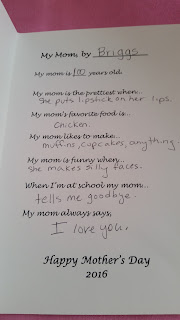 My Mom, by Briggs
My mom is 100 years old.
My mom is the prettiest when...
she puts lipstick on her lips.
My mom's favorite food is...
chicken.
My mom likes to make...
muffins, cupcakes, anything.
My mom is funny when...
she makes silly faces.
When I'm at school my mom...
tells me goodbye.
My mom always says,
I love you.
Happy Mother's Day
2016